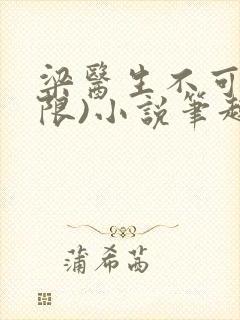 梁醫生不可
限)小說筆趣
蒲希茜